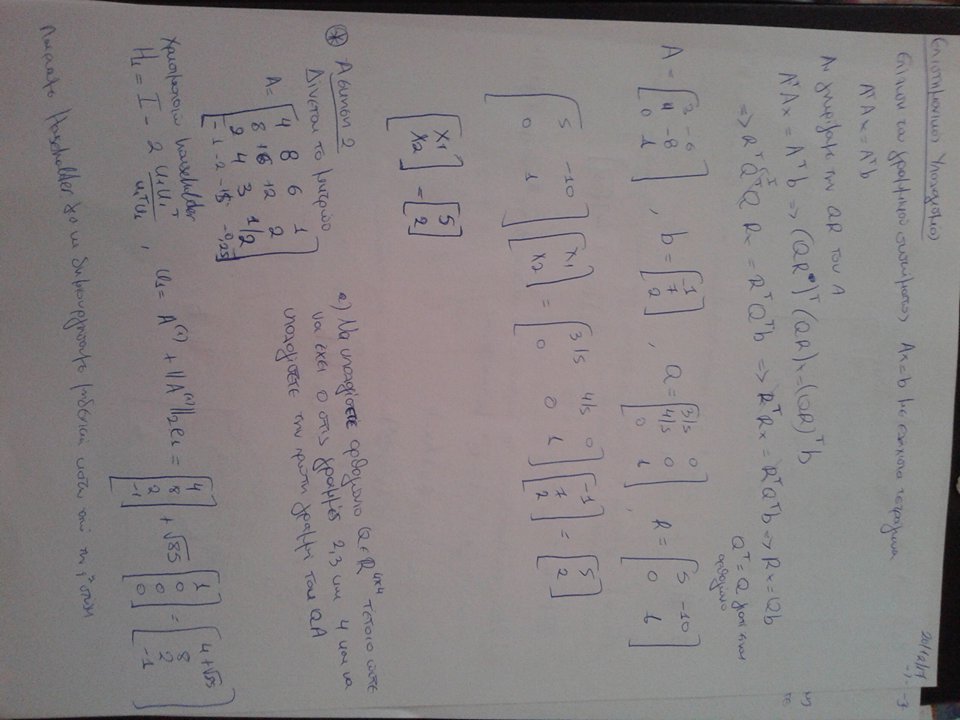 Επιστημονικοί Υπολογισμοί
20/12/17
Επίλυση του γραμμικού συστήματος Ax=b με ελάχιστα τετράγωνα
AᵀAx = Aᵀb
Αν γνωρίζαμε την QR του A
AᵀAx = Aᵀb => (QR)ᵀ(QR)x = (QR)ᵀb
=> RᵀQᵀQRx = RᵀQᵀb => RᵀRx = RᵀQᵀb => Rx = Qb
I
Qᵀ = Q γιατί είναι
ορθογώνιο
A = [3 -6
4 -8
0 1] , b = [-1
7
2] , Q = [3/5 0
4/5 0
0 1] , R = [5 -10
0 1]
[5 -10
0 1] [x1
x2] = [3/5 4/5 0
0 0 1] [-1
7
2] = [5
2]
[x1
x2] = [5
2]
* Άσκηση 2
Δίνεται το μητρώο
A = [4 8 6 1
8 16 12 2
2 4 3 1/2
-1 -2 -1.5 -0.25]
α) Να υπολογίσετε ορθογώνιο Q ∈ ℝ⁴ˣ⁴ τέτοιο ώστε
να έχει 0 στις γραμμές 2,3 και 4 και να
υπολογίσετε την πρώτη γραμμή του QA
Χρησιμοποιώ householder
H1 = I - 2 u1u1ᵀ / uᵀu1 , u1 = A⁽¹⁾ + ||A⁽¹⁾||₂e1 = [4
8
2
-1] + √85 [1
0
0
0] = [4+√85
8
2
-1]
householder για να δημιουργήσουμε μηδενικά